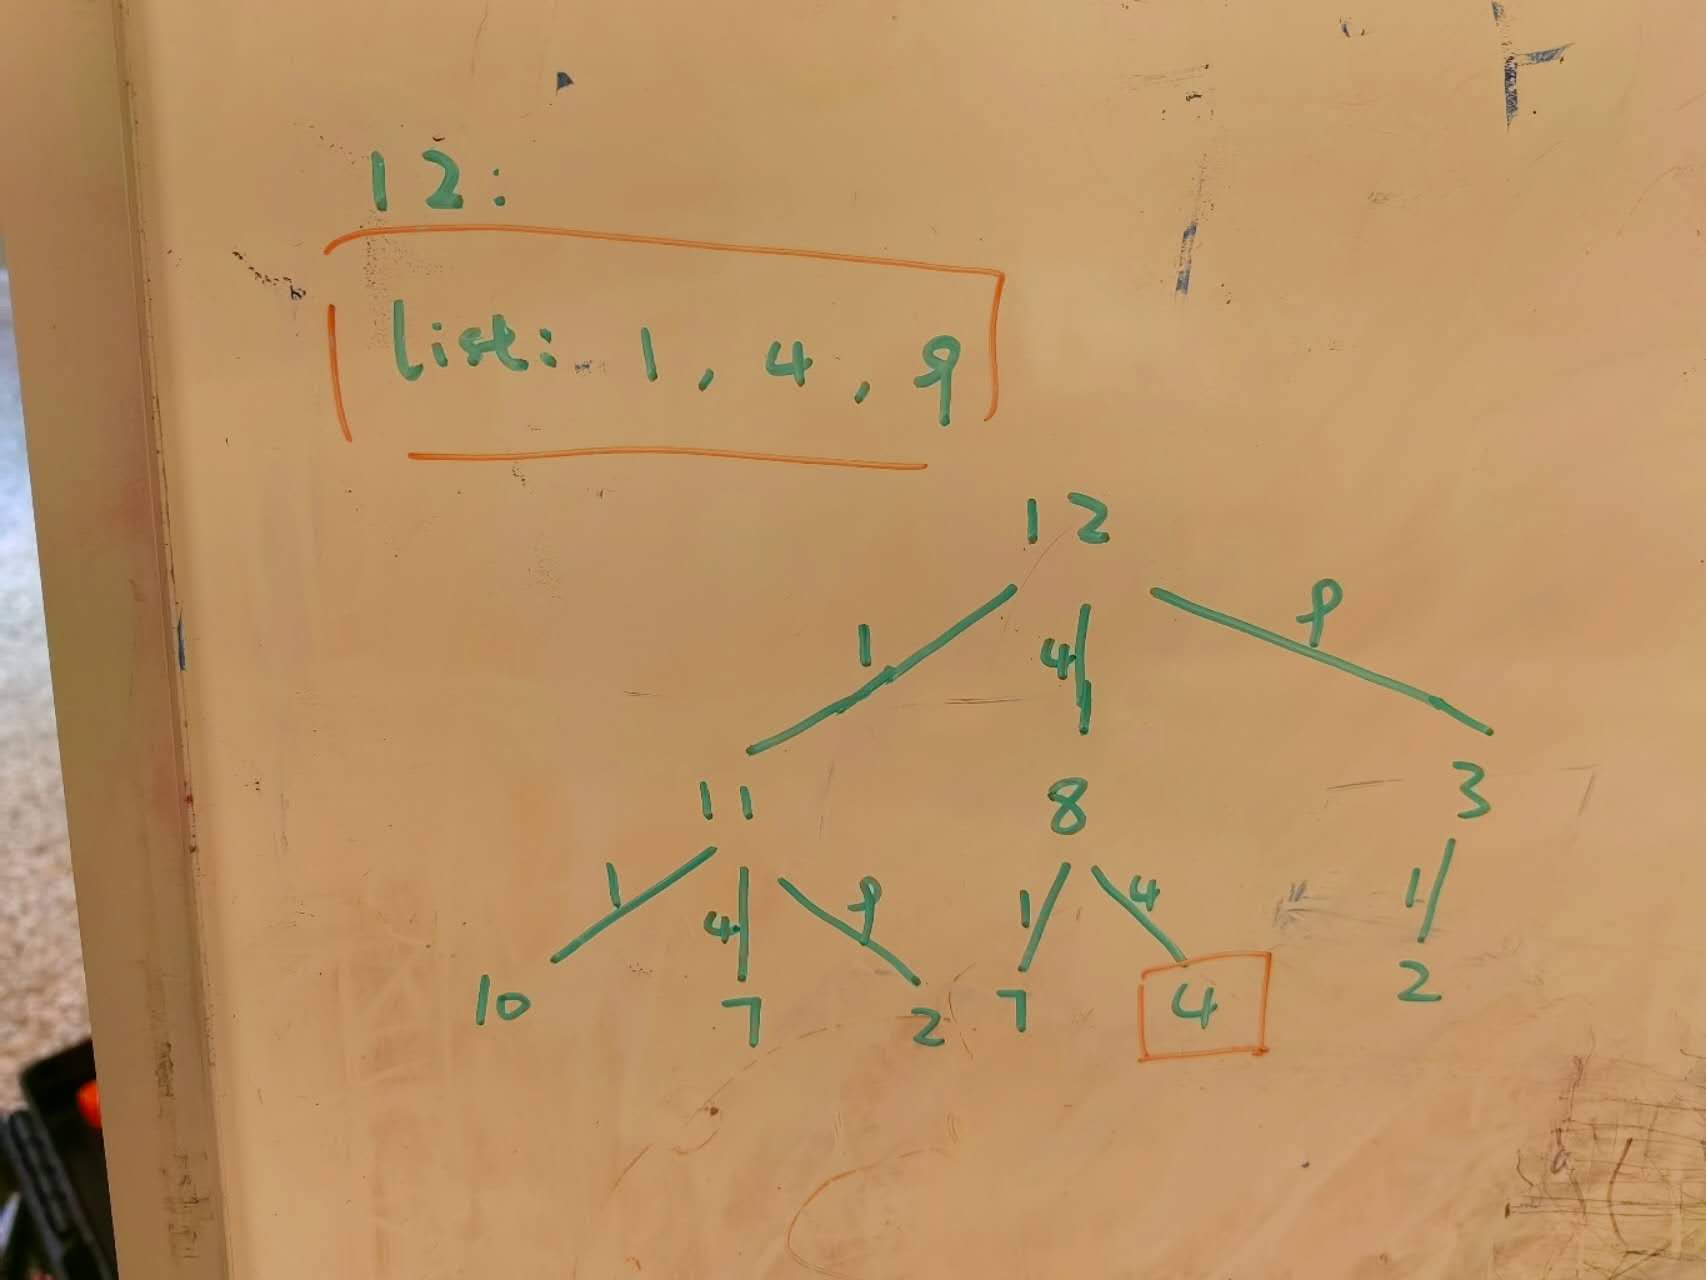 12:
list: 1, 4, 9
12
1 4 9
11 8 3
1 4 9 1 4 1
10 7 2 7 4 2